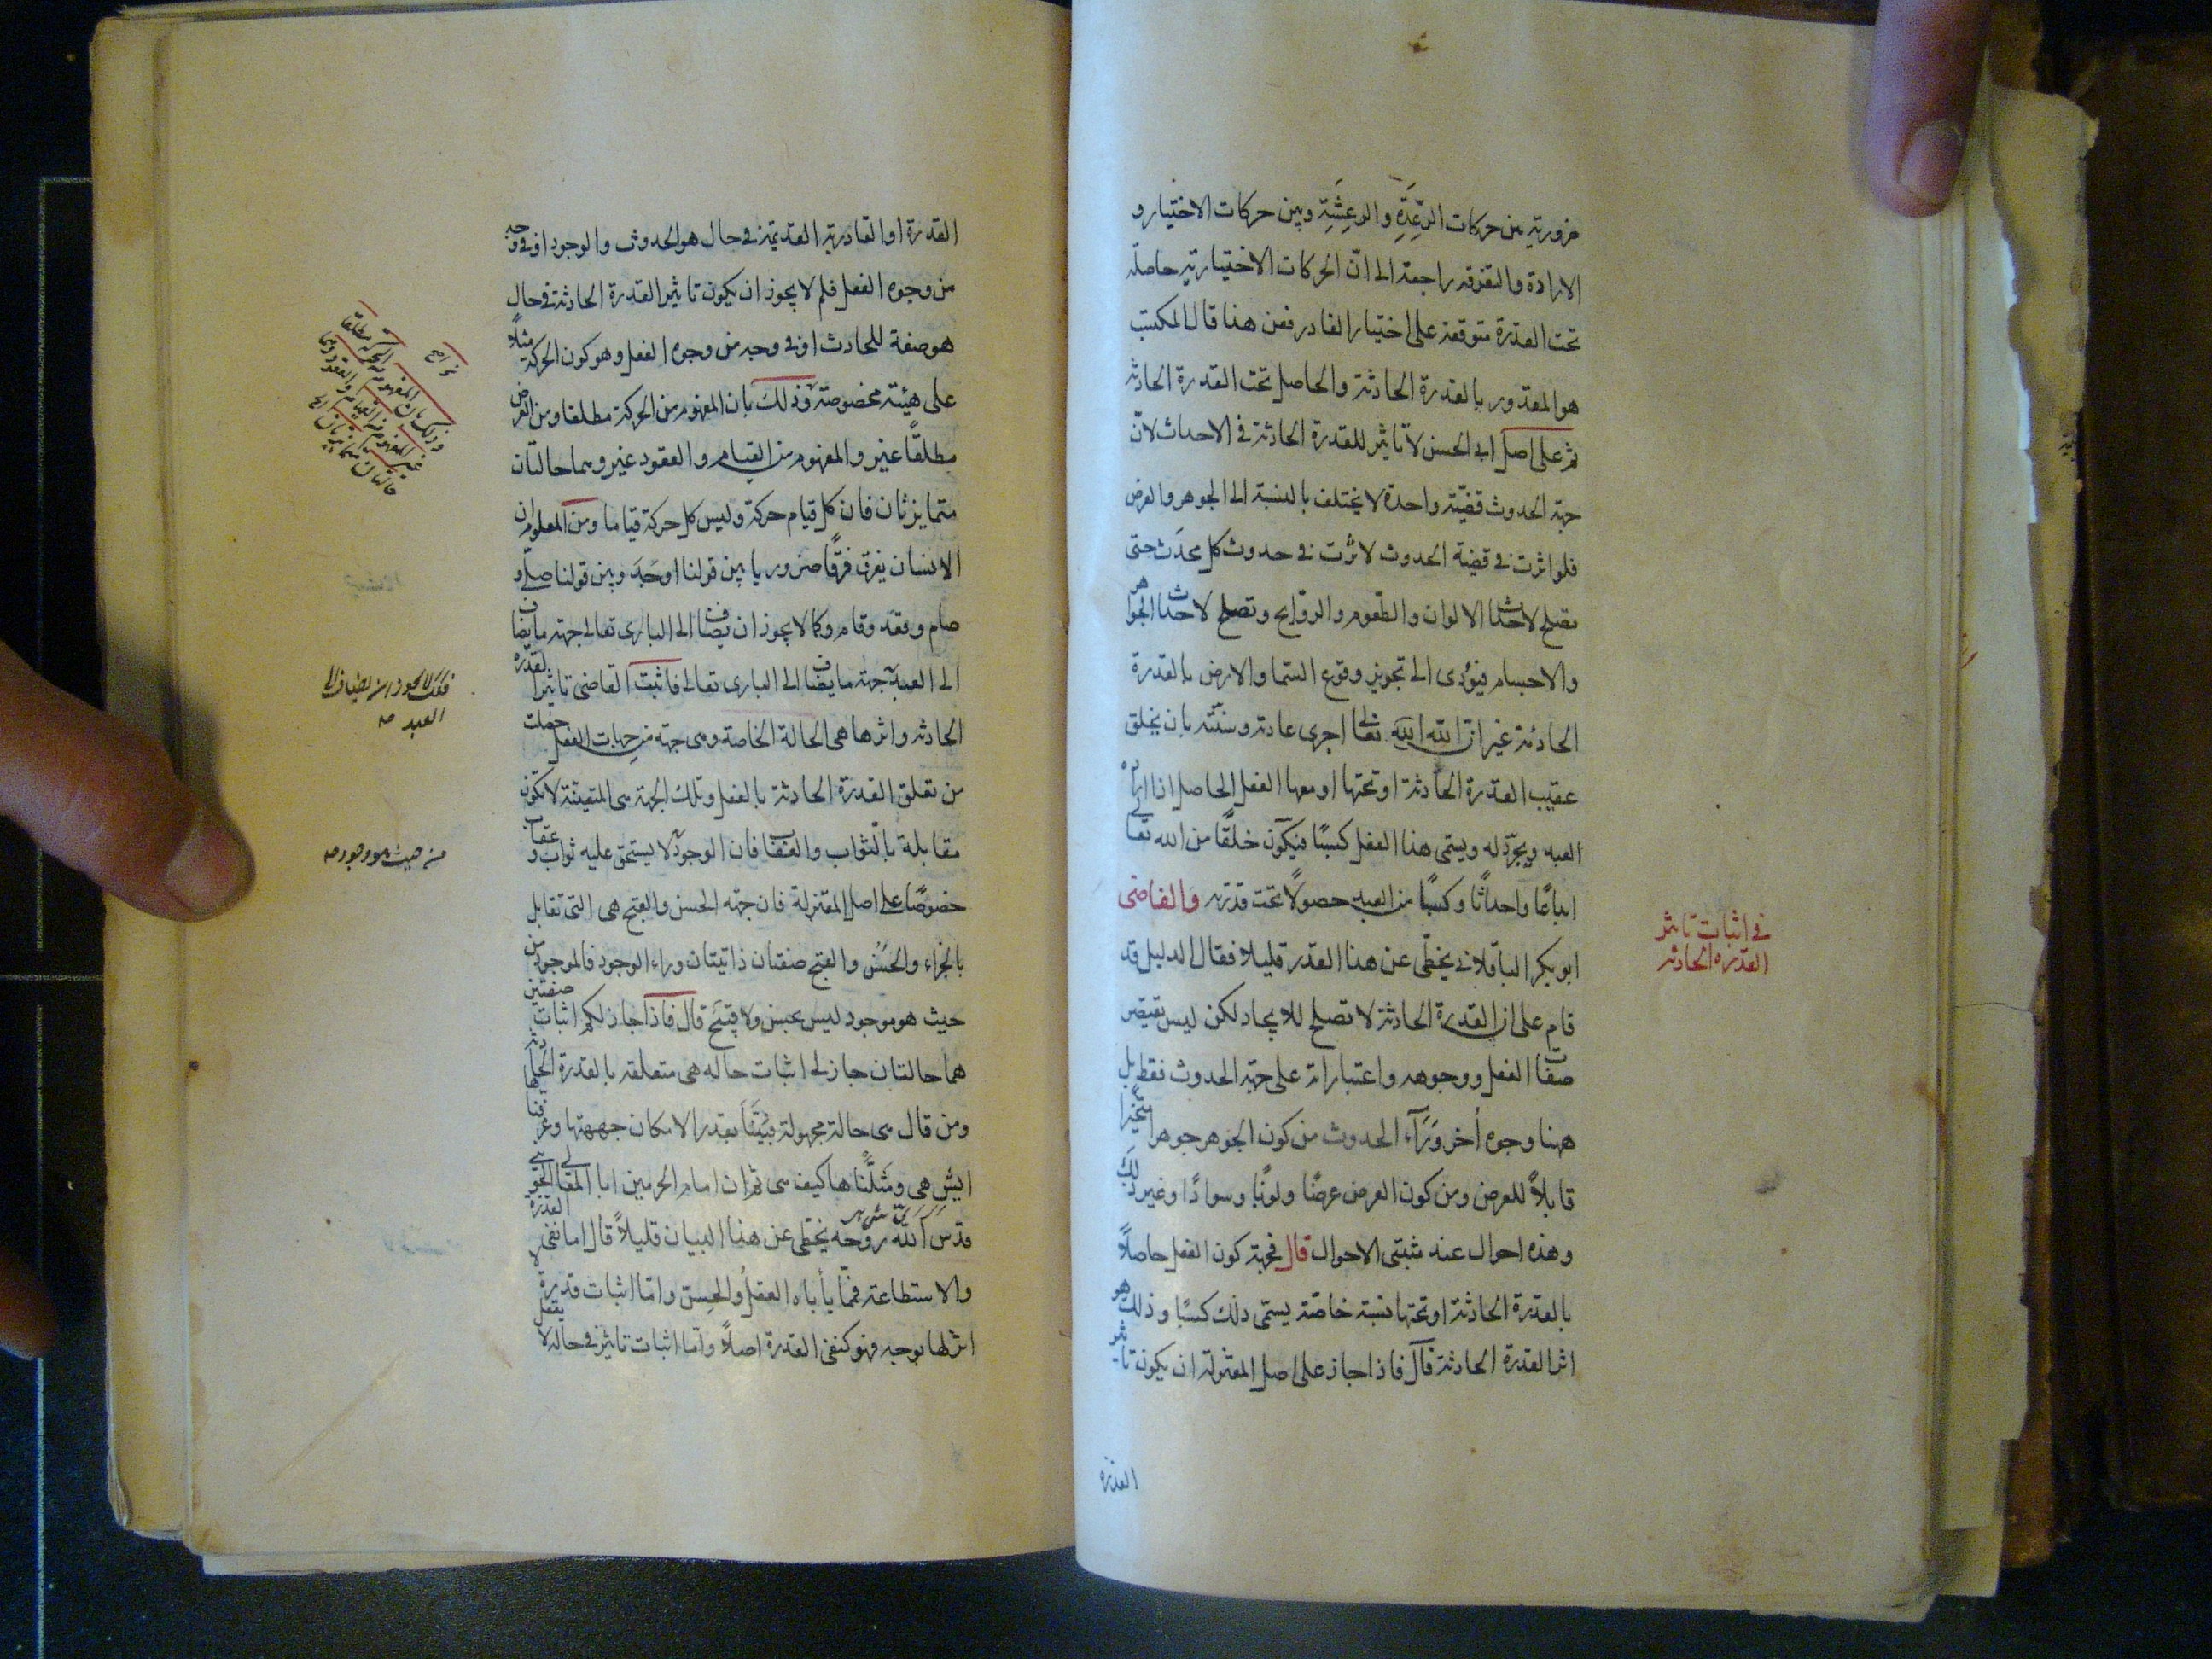 ضرورية بين حركات الرِّعدَةِ والرعِشَةِ وبين حركات الاختيار و
الارادة والتفرقة راجعة الى انّ الحركات الاختيارية حاصلة
تحت القدرة متوقفة على اختيار القادر فعن هذا قال المكتسب
هو المقدور بالقدرة الحادثة والحاصل تحت القدرة الحادثة
ثم على اصل ابى الحسن لا تاثير للقدرة الحادثة فى الاحداث لانّ
جهة الحدوث قضيّة واحدة لا يختلف بالنسبة الى الجوهر والعرض
فلو اثرت فى قضية الحدوث لاثرت فى حدوث كل محدَث حتى
تصلح لاحداث الالوان والطّعوم والروّايح وتصلح لاحداث الجواهر
والاجسام فيؤدى الى تجويز وقوع السما والارض بالقدرة
الحادثة غير انّ الله الله تعالى اجرى عادته وسنّته بان يخلق
عقيب القدرة الحادثة او تحتها او معها الفعل الحاصل اذا اراده
العبد وتجرّد له ويسمّى هذا الفعل كسبًا فيكون خلقًا من الله تعالى
ابداعًا واحداثًا وكسبًا من العبد حصولًا تحت قدرته والقاضى
فى اثبات تاثير
القدرة الحادثة
ابو بكر الباقلانى يخطّى عن هذا القدر قليلا فقال الدليل قد
قام على ان القدرة الحادثة لا تصلح للايجاد لكن ليس تقتصر
صفات الفعل ووجوهه واعتباراته على جهة الحدوث فقط بل
ههنا وجوه أخر وَرَآء الحدوث من كون الجوهر جوهرا متحيّزا
قابلاً للعرض ومن كون العرض عرضًا ولونًا وسوادًا وغير ذلك
وهذه احوال عند مثبتى الاحوال قال فجهة كون الفعل حاصلاً
بالقدرة الحادثة او تحتها نسبة خاصّة يسمّى ذلك كسبًا وذلك هو
اثر القدرة الحادثة قال فاذا جاز على اصل المعتزلة ان يكون تاثير
القدرة
القدرة او القادرية القديمة فى حال هو الحدوث والوجود او فى وجه
من وجوه الفعل فلم لا يجوز ان يكون تاثير القدرة الحادثة فى حال
هو صفة للحادث او فى وجه من وجوه الفعل وهو كون الحركة مثلًا
على هيئة مخصوصة وذلك بان المفهوم من الحركة مطلقا ومن العرض
مطلقًا غير والمفهوم من القيام والقعود غير وهما حالتان
متمايزتان فان كل قيام حركة وليس كل حركة قياما ومن المعلوم ان
الانسان يفرق فرقًا ضروريا بين قولنا اوجَدَ وبين قولنا صلّى و
صام وقعد وقام وكما لا يجوز ان يضاف الى البارى تعالى جهة ما يضاف
الى العبد جهة ما يضاف الى البارى تعالى فاثبت القاضى تاثيرا لقدرة
فكذلك لا يجوز ان يضاف الى
العبد صح
الحادثة واثرها هى الحالة الخاصة وهى جهة من جهات الفعل حصلت
من تعلق القدرة الحادثة بالفعل وتلك الجهة هى المتعينة لا تكون
مقابلة بالثواب والعقاب فان الوجود لا يستحق عليه ثواب و عقاب
من حيث هو وجود صح
خصوصًا على اصل المعتزلة فان جهة الحسن والقبح هى التى تقابل
بالجزاء والحُسْن والقبح صفتان ذاتيتان وراء الوجود فالموجود من
حيث هو موجود ليس بحسن ولا قبيح قال فاذا جاز لكم اثبات صفتين
هما حالتان جاز لى اثبات حالة هى متعلقة بالقدرة الحادثة
ومن قال هى حالة مجهولة فبيّنّا بقدر الامكان جهتها وعرفناها
ايش هى ومثّلناها كيف هى ثم ان امام الحرمين ابا المعالى الجوينى
قدّس اللّه روحه يخطى عن هذا البيان قليلاً قال اما نفى القدرة
والاستطاعة فمّما يأباه العقلُ والحِسّ وامّا اثبات قدرة لا
اثر لها بوجه فهو كنفى القدرة اصلاً وامّا اثبات تاثير فى حالة لا يعقل